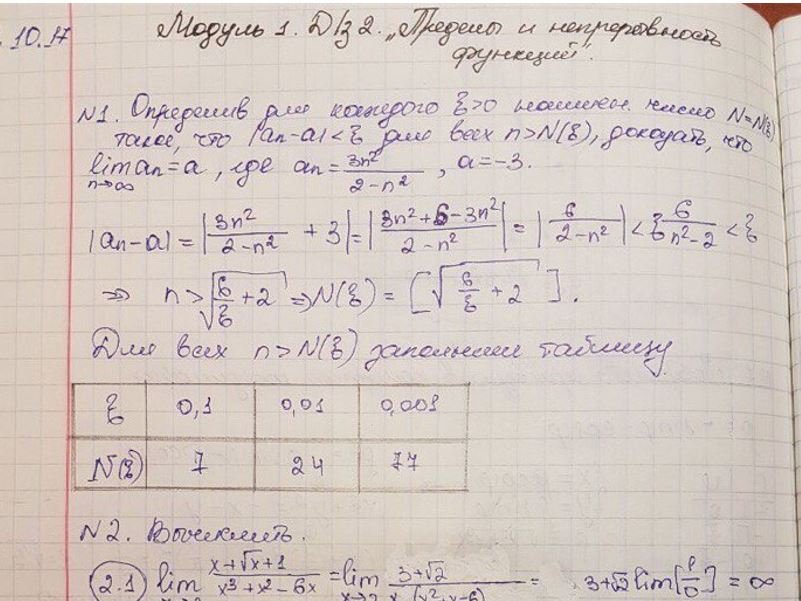 10.17
Модуль 1. ДЗ 2. „Пределы и непрерывность
функций".
N1. Определив для каждого ξ>0 наимен. число N=N(ξ)
такое, что |an-a|<ξ для всех n>N(ξ), доказать, что
lim an=a, где an=3n²/(2-n²), a=-3.
n→∞
|an-a| = |3n²/(2-n²) + 3| = |(3n²+6-3n²)/(2-n²)| = |6/(2-n²)| < ξ 6/(n²-2) < ξ
⇒ n>√(6/ξ+2) ⇒ N(ξ) = [√(6/ξ + 2)].
Для всех n>N(ξ) заполним таблицу
ξ 0,1 0,01 0,001
N(ξ) 7 24 77
N2. Вычислить.
2.1 lim (x+√x+1)/(x³+x²-6x) = lim (3+√2)/(x(x²+x-6)) = 3+√2 lim[1/0] = ∞